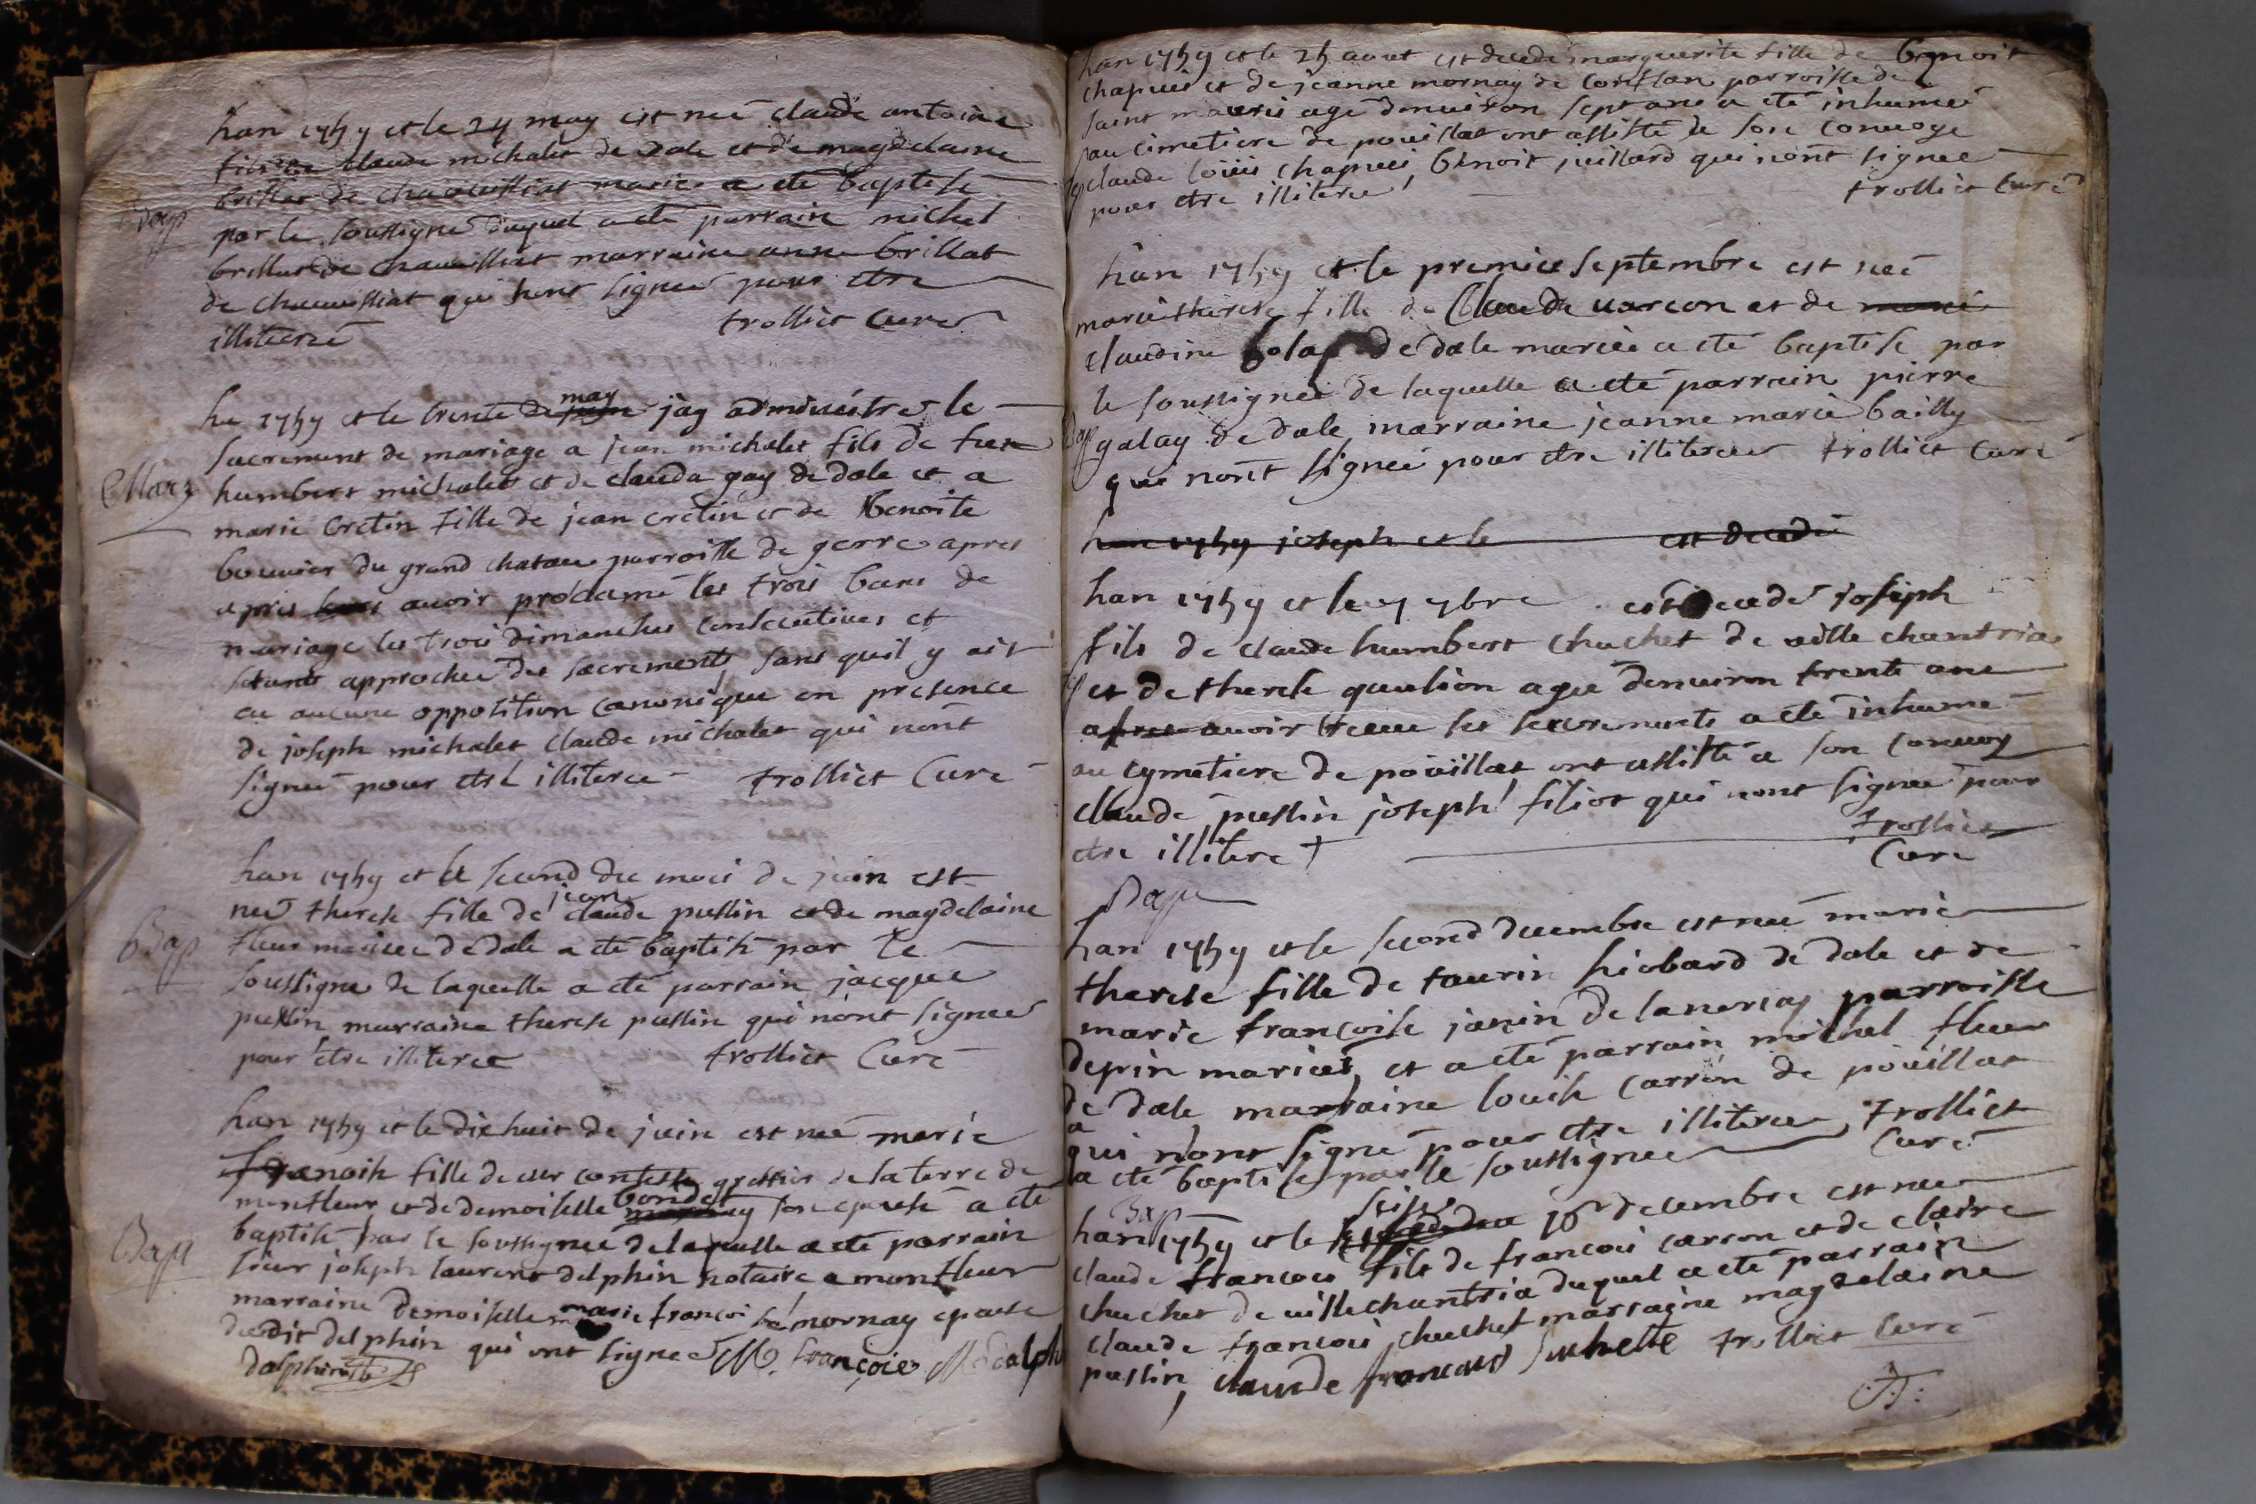 han 1759 et le 24 may est neé claude antoine
fils de claude michalet de dale et de magdelaine
brillat de chavussiat mariés a eté baptisé
Bap
par le soussigné duquel a eté parrain michel
brillat de chavussiat marraine anne brillat
de chavussiat qui nont signeé pour etre
illitereé trolliet Curé
lan 1759 et le trente de may jay administré le
sacrement de mariage a jean michalet fils de feu
Mary
humbert michalet et de clauda gay de dale et a
marie cretin fille de jean cretin et de Benoite
bouvier du grand chatau parroisse de germe apres
apres avoir proclamé les trois bans de
mariage les trois dimanches consecutives et
setants approcheé des sacrements sans quil y ait
eu aucune opposition canonique en presence
de joseph michalet claude michalet qui nont
signeé pour etre illitereé trolliet Curé
han 1759 et le second du mois de juin est
neé therese fille de jean claude puslin et de magdelaine
Bap
fleur mariee de dale a eté baptisé par le
soussigné de laquelle a eté parrain jacque
puslin marraine therese puslin qui nont signeé
pour etre illitereé trolliet Curé
han 1759 et le dixhuit de juin est neé marie
francoise fille de sieur greffier de la terre de
montfleur et de demoiselle bondet son epouse a eté
Bap
baptisé par le soussigneé de laquelle a eté parrain
sieur joseph laurent delphin notaire a montfleur
marraine demoiselle marie francoise mornay epouse
dudit delphin qui ont signeé M. françoise M dalphin
dalphin
han 1759 et le 25 aout est decedé marguerite fille de Benoit
chapuis et de jeanne mornay de conflan parroisse de
saint mauris agé denuiron sept ans a eté inhumeé
au cimetiere de pouillat ont assisté de son convoye
claude loüis chapuis, benoit juillard qui nont signeé
pour etre illitereé trolliet Curé
han 1759 et le premier septembre est neé
marie therese fille de Claude varcon et de marie
claudine de dale mariée a eté baptisé par
le soussigneé de laquelle a eté parrain pierre
Bap
galay de dale marraine jeanne marie bailly
qui nont signeé pour etre illitereé trolliet Curé
han 1759 joseph et le est decedé
han 1759 et le 7 7bre est decedé joseph
fils de claude humbert chuchet de ville chantria
et de therese queulion agée denuiron trente ans
apres avoir receu les sacrements a eté inhumé
au cymetiere de poüillat ont assisté a son convoy
claude puslin joseph filiot qui nont signeé pour
etre illitere trolliet
Curé
Bap
han 1759 et le second decembre est neé marie
therese fille de taurin hiobard de dale et de
marie francoise janin de lanercay parroisse
depin mariés, et a eté parrain michel fleur
de dale, marraine louise carron de poüillat
qui nont signé pour etre illitereé, trolliet
a eté baptisé par le soussigneé Curé
Bap
han 1759 et le seise 16 decembre est neé
claude francois fils de francois carron et de claire
chuchet de villechantria duquel a eté parrain
claude francois chuchet marraine magdelaine
puslin, claude francois Suchette trolliet Curé